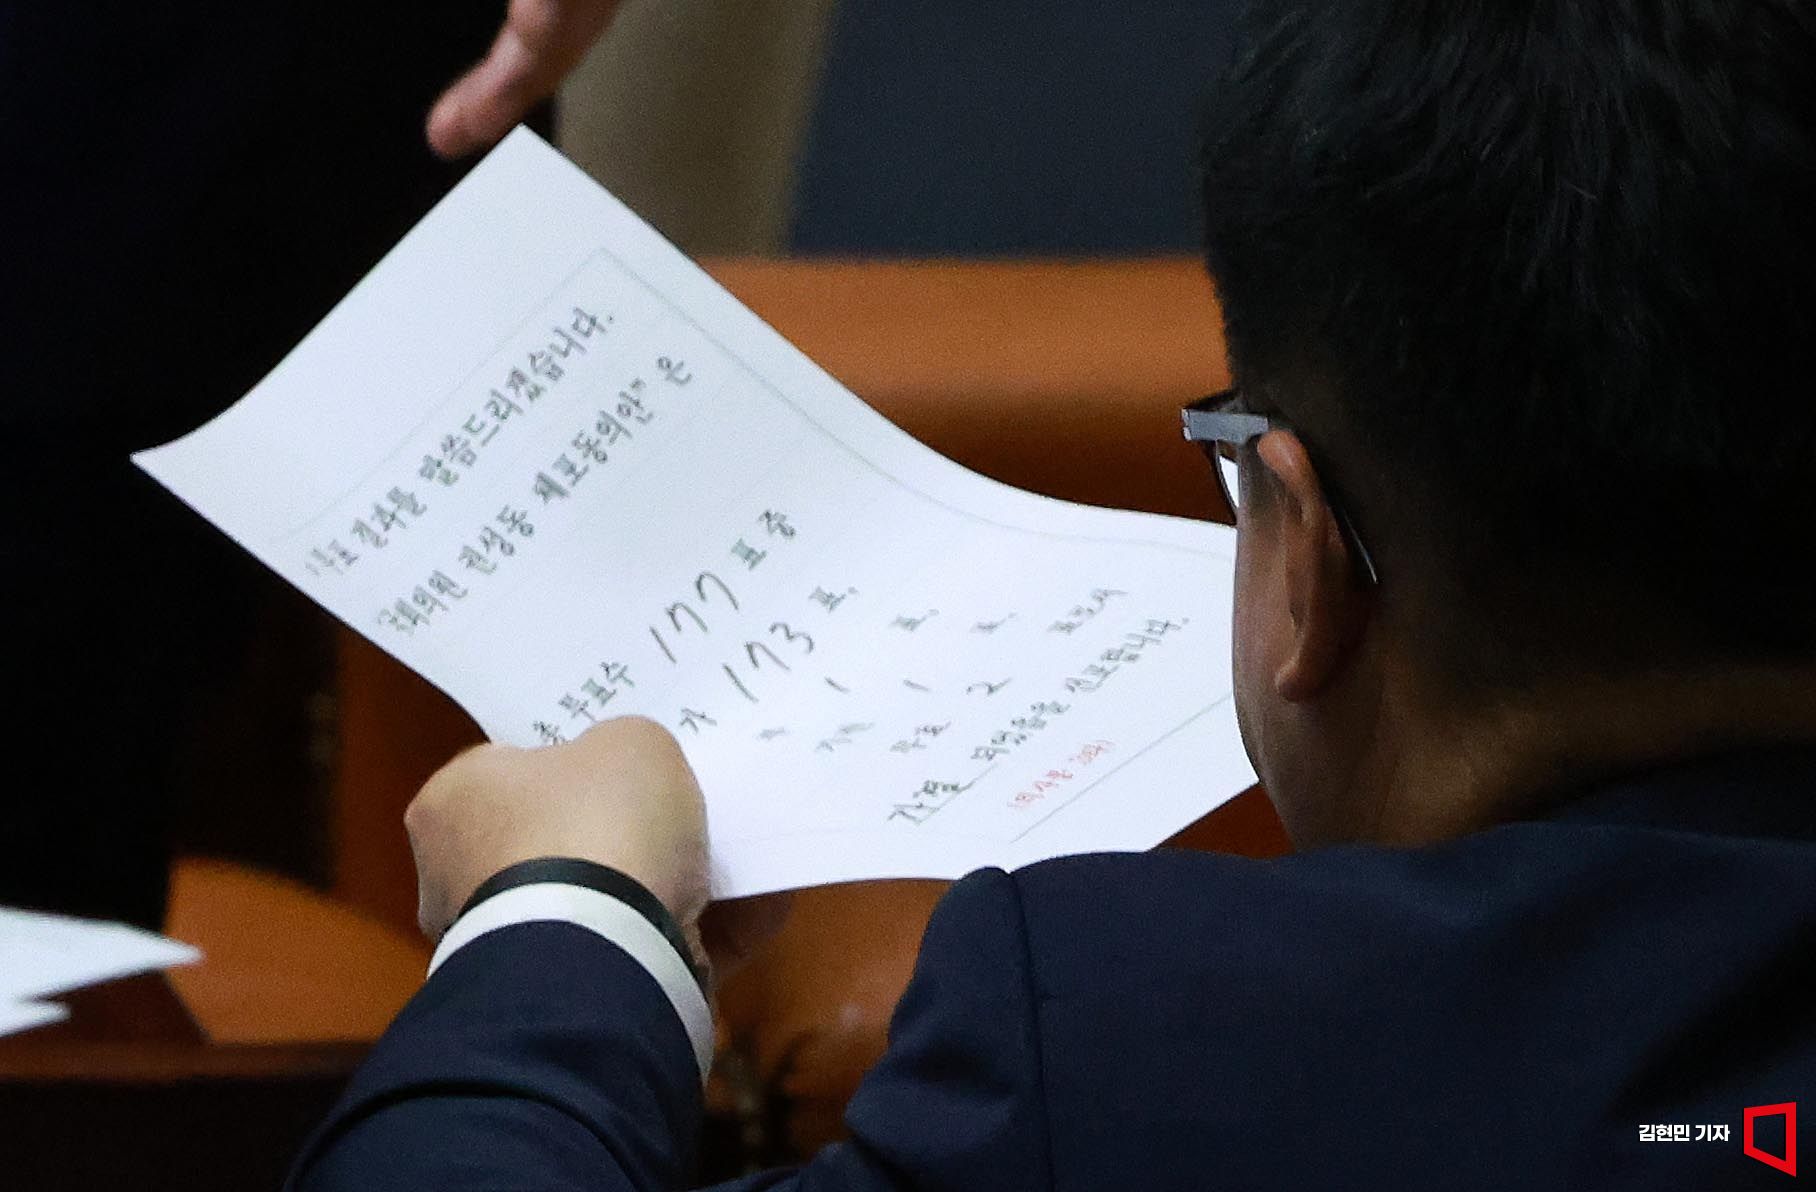 투표 결과를 말씀드리겠습니다.
국회의원 권성동 체포동의안" 은
총 투표수 177 표 중
가 173 표,
부 1 표,
기권 1 표,
무효 2 표로서
가결 되었음을 선포합니다.
(의사봉 3타)
김현민 기자